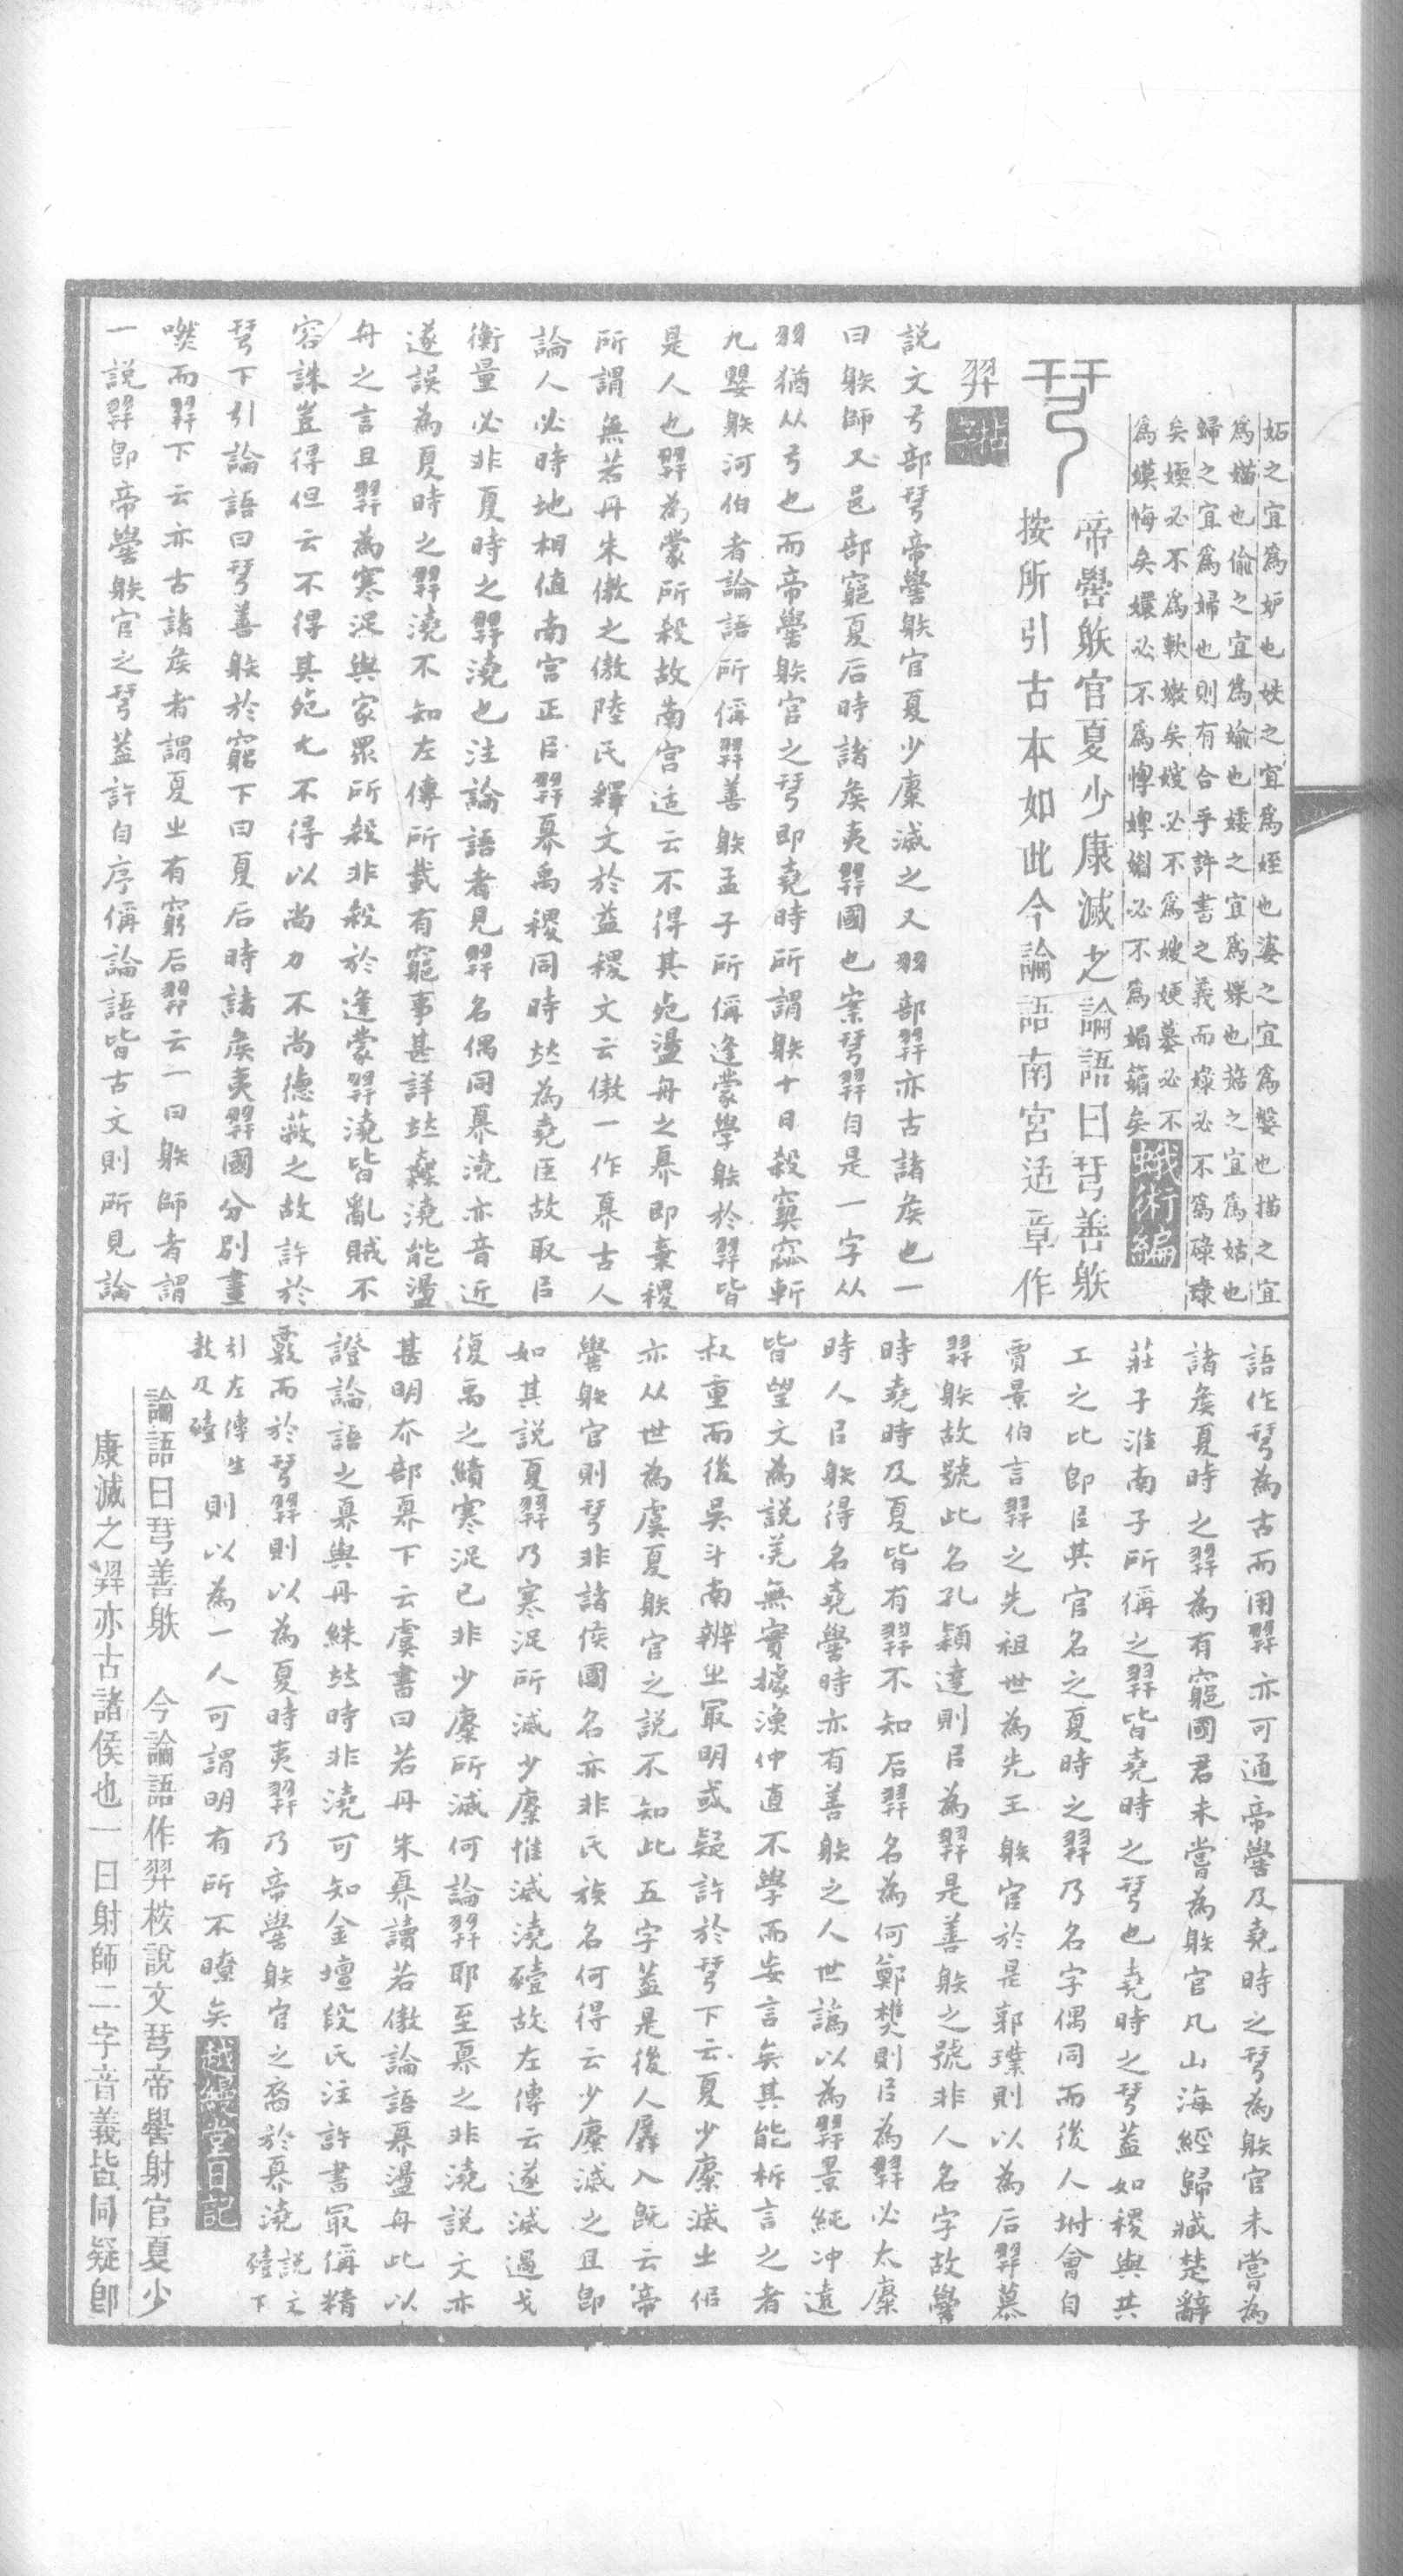 妬之宜爲妒也妷之宜爲姪也婆之宜爲媻也描之宜
爲媌也偷之宜爲媮也矮之宜爲婐也菇之宜爲姑也
歸之宜爲婦也則有合乎許書之義而婇必不爲碌
矣媆必不爲軟嫰矣嫂必不爲嫂㛐蓦必不
爲嫫悔矣嬛必不爲婢媚必不爲媚矣
蛾術編
𢎗
帝嚳䠶官夏少康滅之論語曰𢎗善䠶
按所引古本如此今論語南宮适章作
羿
説文弓部𢎗帝嚳䠶官夏少康滅之又羽部羿亦古諸矦也一
曰䠶師又邑部竆夏后時諸矦夷羿國也案𢎗羿自是一字从
羽猶从弓也而帝嚳䠶官之𢎗即堯時所謂䠶十日殺窫窳斬
九嬰䠶河伯者論語所偁羿善䠶孟子所偁逢蒙學䠶於羿皆
是人也羿為蒙所殺故南宮适云不得其死盪舟之奡即棄稷
所謂無若丹朱傲之傲陸氏釋文於益稷文云傲一作奡古人
論人必時地相值南宮正㠯羿奡禹稷同時竝為堯臣故取㠯
衡量必非夏時之羿澆也注論語者見羿名偶同奡澆亦音近
遂誤為夏時之羿澆不知左傳所載有竆事甚詳竝無澆能盪
舟之言且羿為寒浞與家眾所殺非殺於逢蒙羿澆皆亂賊不
容誅豈得但云不得其死尤不得以尚力不尚德蔽之故許於
𢎗下引論語曰𢎗善䠶於竆下曰夏后時諸矦夷羿國分别畫
嘫而羿下云亦古諸矦者謂夏㞢有窮后羿云一曰䠶師者謂
一説羿即帝嚳䠶官之𢎗葢許自序偁論語皆古文則所見論
語作𢎗為古而用羿亦可通帝嚳及堯時之𢎗為䠶官未嘗為
諸矦夏時之羿為有竆國君未嘗為䠶官凡山海經歸藏楚辭
莊子淮南子所偁之羿皆堯時之𢎗也堯時之𢎗葢如稷與共
工之比即㠯其官名之夏時之羿乃名字偶同而後人坿會自
賈景伯言羿之先祖世為先王䠶官於是郭璞則以為后羿慕
羿䠶故號此名孔穎達則㠯為羿是善䠶之號非人名字故嚳
時堯時及夏皆有羿不知后羿名為何鄭樵則㠯為羿必太康
時人㠯䠶得名堯嚳時亦有善䠶之人世譌以為羿景純沖遠
皆望文為説羌無實據漁仲直不學而妄言矣其能析言之者
叔重而後吳斗南辨㞢冣明或疑許於𢎗下云夏少康滅㞢㑚
亦从世為虞夏䠶官之説不知此五字葢是後人羼入既云帝
嚳䠶官則𢎗非諸侯國名亦非氏族名何得云少康滅之且即
如其説夏羿乃寒浞所滅少康惟滅澆豷故左傳云遂滅過戈
復禹之績寒浞已非少康所滅何論羿耶至奡之非澆説文亦
甚明夰部奡下云虞書曰若丹朱奡讀若傲論語奡盪舟此以
證論語之奡與丹絑竝時非澆可知金壇段氏注許書冣偁精
覈而於𢎗羿則以為夏時夷羿乃帝嚳䠶官之裔於奡澆説文豷下
引左傳生敖及豷則以為一人可謂明有所不瞭矣越縵堂日記
論語曰𢎗善䠶　今論語作羿桉說文𢎗帝嚳射官夏少
康滅之羿亦古諸侯也一曰射師二字音義皆同疑卽